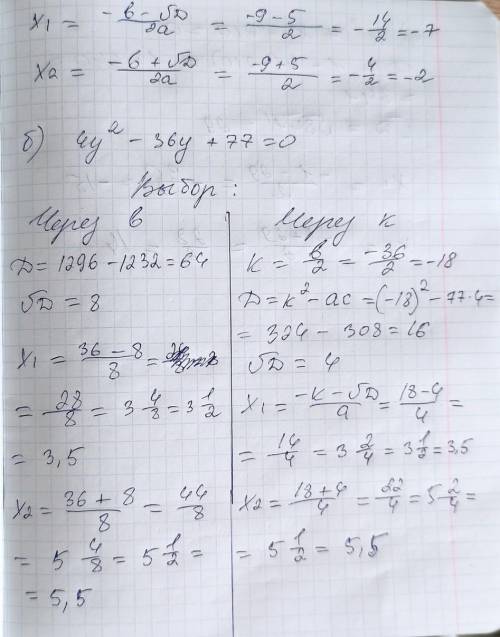 x1 = (-b - √D)/2a = (-9-5)/2 = -14/2 = -7
x2 = (-b + √D)/2a = (-9+5)/2 = -4/2 = -2
б) 4y² - 36y + 77 = 0
Выбор:
Через b
D = 1296 - 1232 = 64
√D = 8
x1 = (36 - 8)/8 =
= 28/8 = 3 4/8 = 3 1/2
= 3,5
x2 = (36 + 8)/8 = 44/8
= 5 4/8 = 5 1/2 =
= 5,5
Через k
k = b/2 = -36/2 = -18
D = k² - ac = (-18)² - 77·4 =
= 324 - 308 = 16
√D = 4
x1 = (-k - √D)/a = (18-4)/4 =
= 14/4 = 3 2/4 = 3 1/2 = 3,5
x2 = (18+4)/4 = 22/4 = 5 2/4 =
= 5 1/2 = 5,5